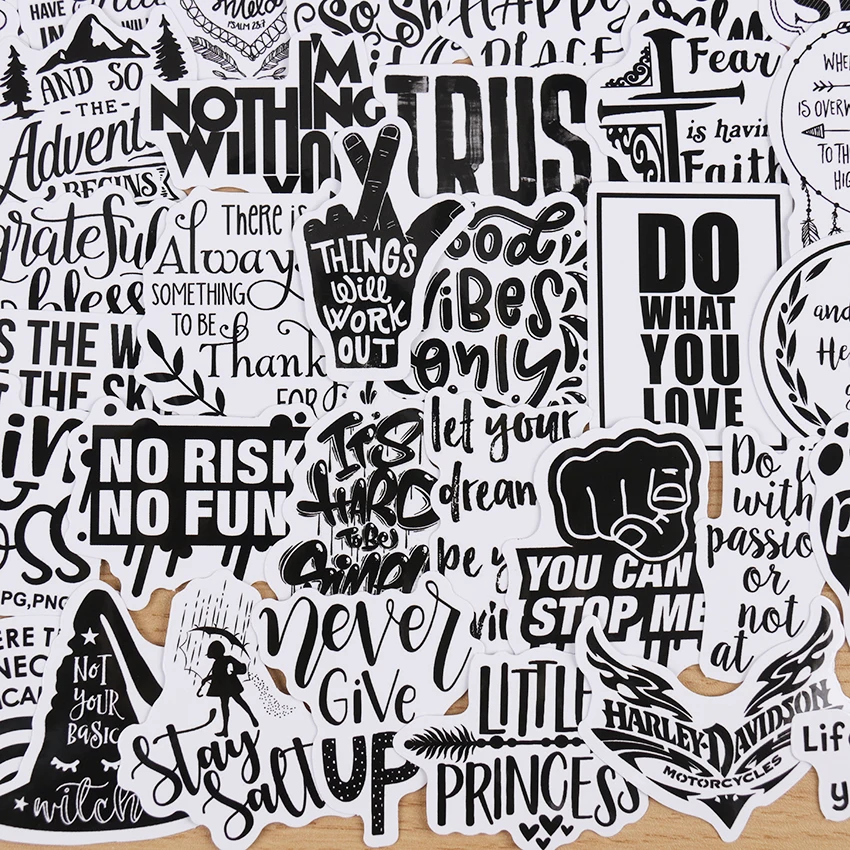 HAVE
IN
WILL
shield
PSALM 28:7
So Sh
HAPPY
PLACE
AND SO
-THE-
Advent
BEGINS
I'M
NOTHING
WITHOU
YO
TRUS
Fear
is havin
Faith
WHE
IS OVERW
TO TH
HIG
grateful
bless
THERE is
Always
SOMETHING
TO BE
Thank
FOR
THINGS
Will
WORK
OUT
Good
ViBES
only
DO
WHAT
YOU
LOVE
and
He
g
S THE W
THE SK
NO RISK
NO FUN
IT'S
HARD
To Be
Simpl
let your
dream
be y
wi
YOU CAN
STOP ME
Do i
with
passio
or
not
at
p
OSS
PG,PNG
ERE T
NEC
ICAL
NOT
YOUR
BASIC
witch
Stay
Salt
never
GiVE
UP
LITTLE
PRINCESS
HARLEY-DAVIDSON
MOTORCYCLES
Life
y